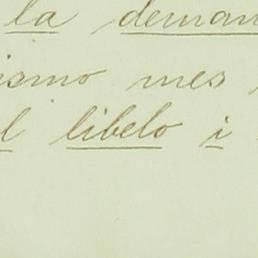 la deman
ismo mes
l libelo i